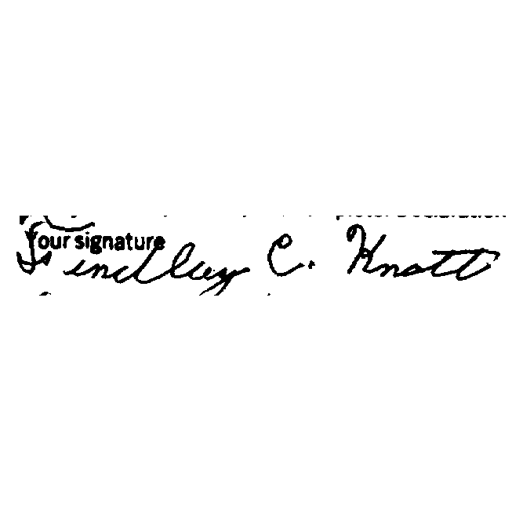 Your signature
Findlay C. Knott